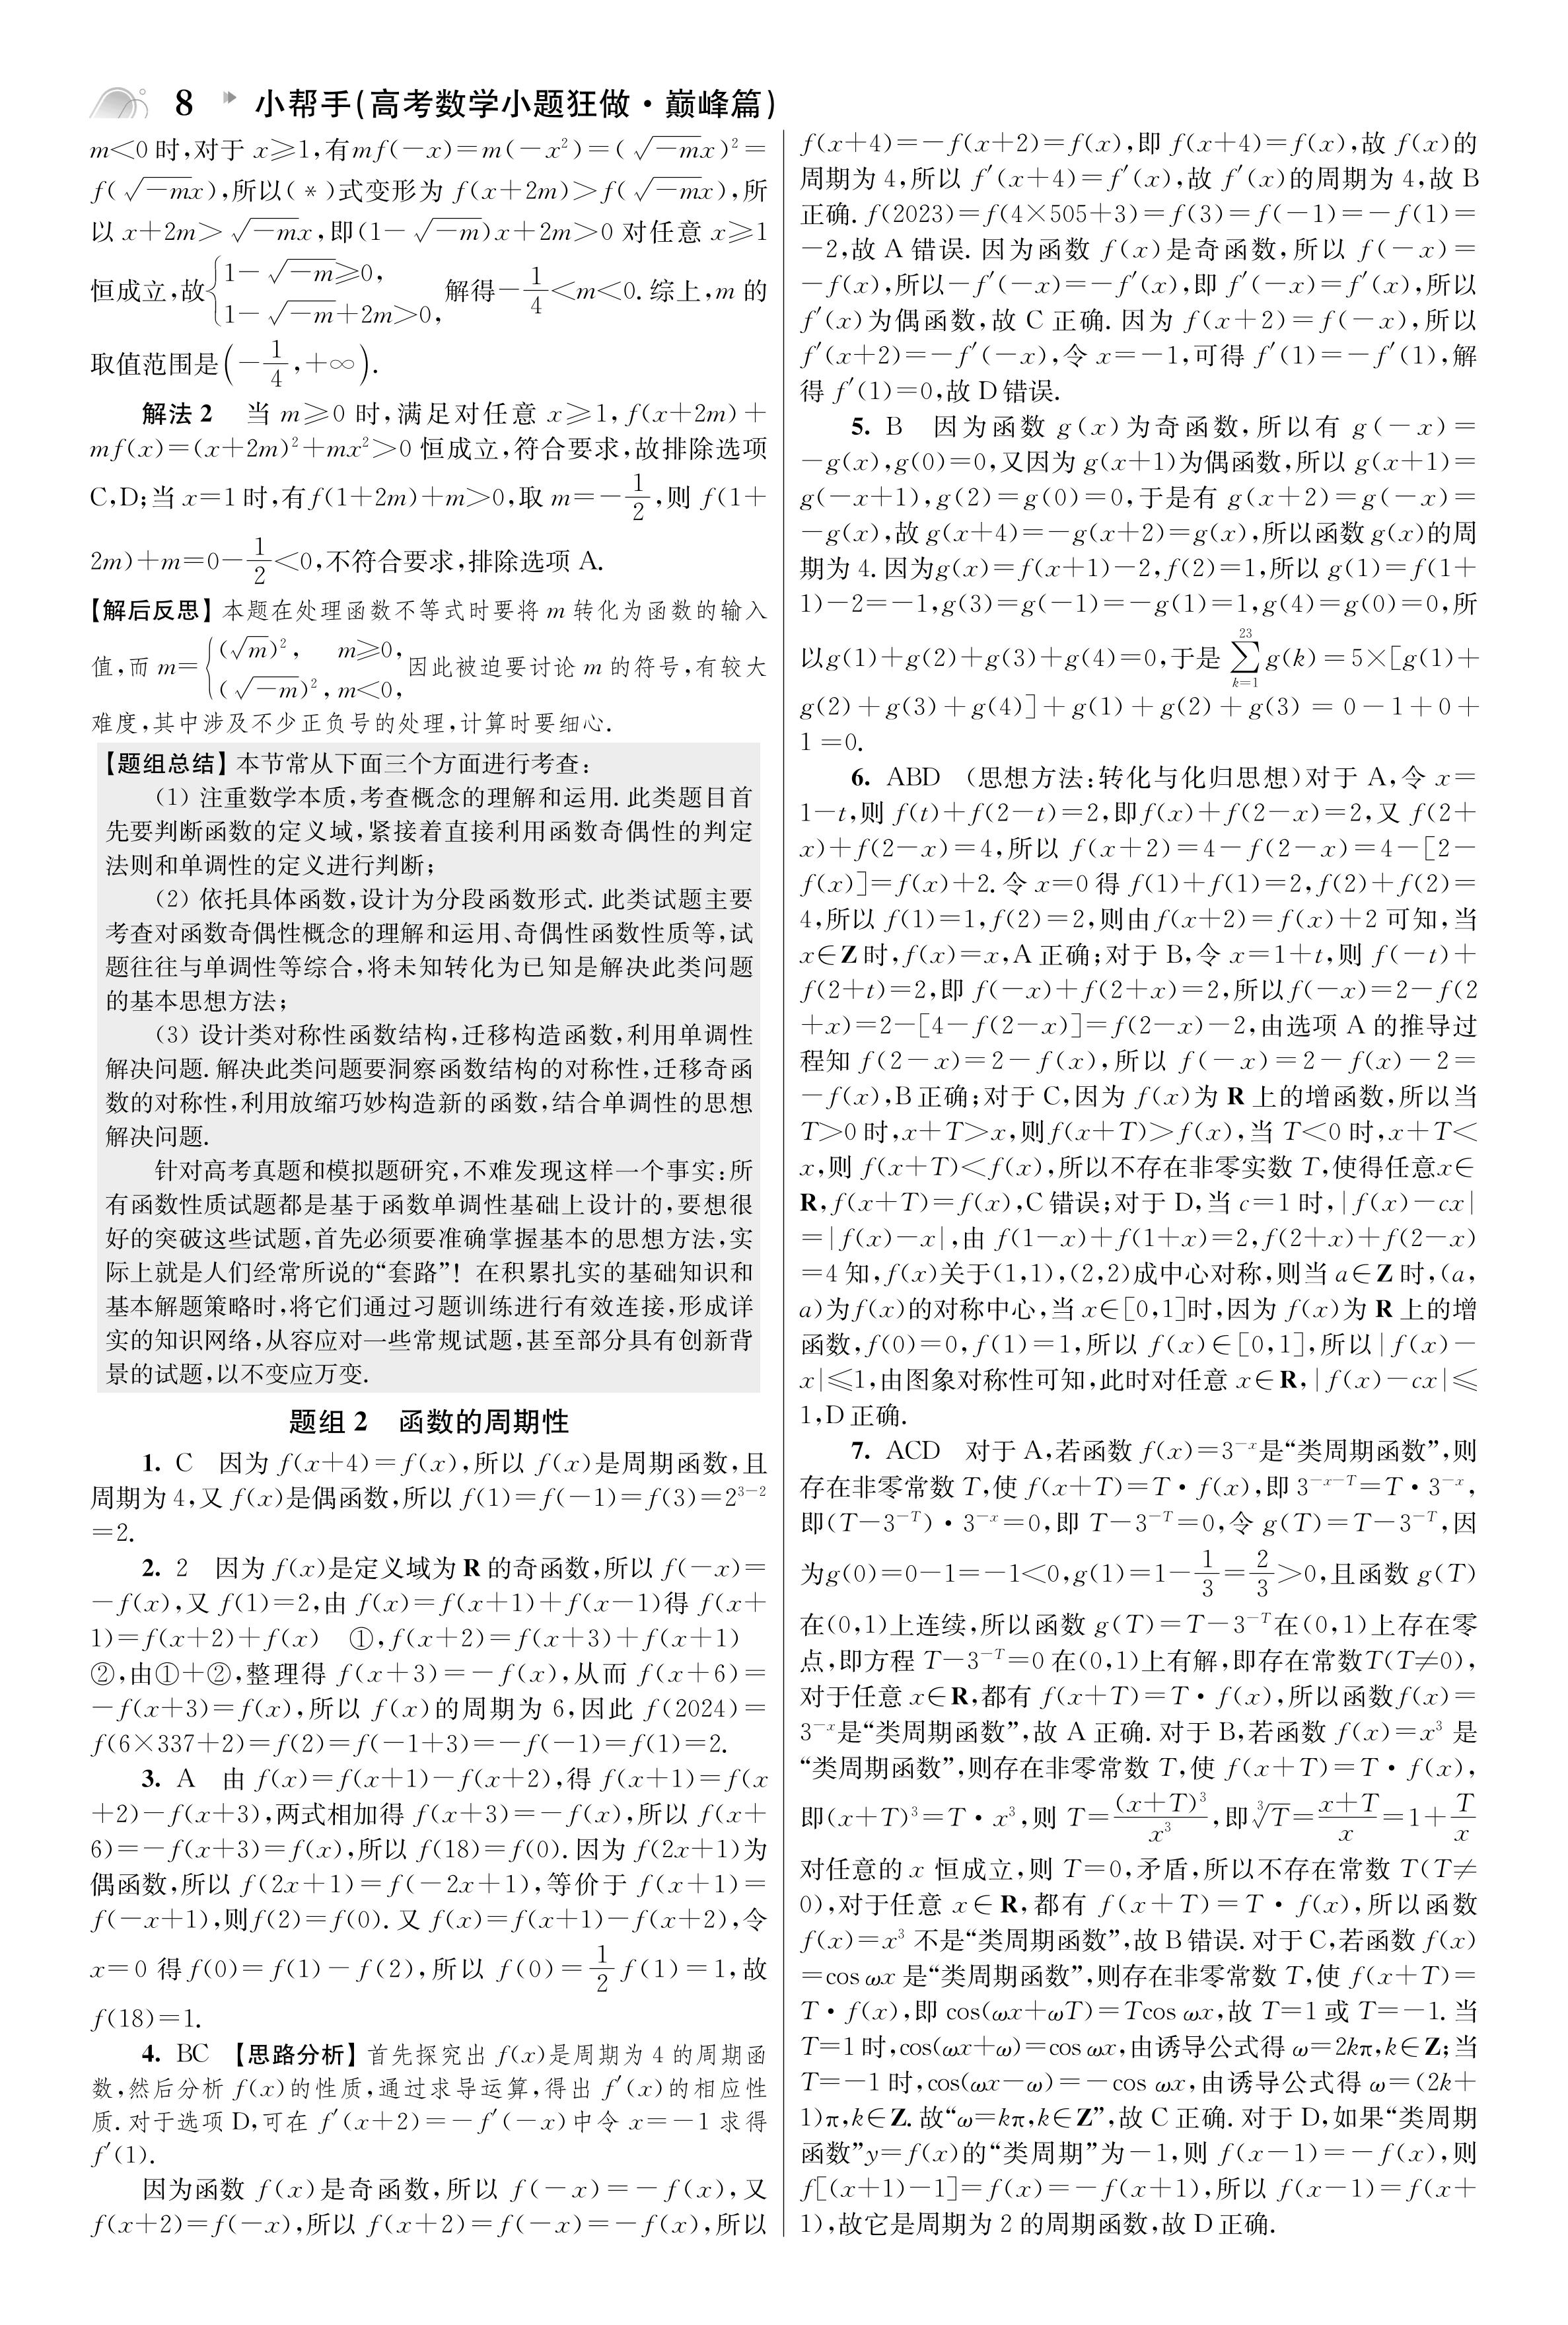 8 小帮手(高考数学小题狂做·巅峰篇)
m<0时,对于 x≥1,有mf(-x)=m(-x²)=(√(-m)x)²=
f(√(-m)x),所以(*)式变形为 f(x+2m)>f(√(-m)x),所
以 x+2m>√(-m)x,即(1-√(-m))x+2m>0 对任意 x≥1
恒成立,故{1-√(-m)≥0, 1-√(-m)+2m>0, 解得-1/4<m<0. 综上,m 的
取值范围是(-1/4,+∞).
解法2 当 m≥0 时,满足对任意 x≥1,f(x+2m)+
mf(x)=(x+2m)²+mx²>0 恒成立,符合要求,故排除选项
C,D;当 x=1时,有f(1+2m)+m>0,取 m=-1/2,则 f(1+
2m)+m=0-1/2<0,不符合要求,排除选项 A.
【解后反思】本题在处理函数不等式时要将 m 转化为函数的输入
值,而 m={(√m)², m≥0, (√(-m))²,m<0, 因此被迫要讨论 m 的符号,有较大
难度,其中涉及不少正负号的处理,计算时要细心.
【题组总结】本节常从下面三个方面进行考查:
(1) 注重数学本质,考查概念的理解和运用. 此类题目首
先要判断函数的定义域,紧接着直接利用函数奇偶性的判定
法则和单调性的定义进行判断;
(2) 依托具体函数,设计为分段函数形式. 此类试题主要
考查对函数奇偶性概念的理解和运用、奇偶性函数性质等,试
题往往与单调性等综合,将未知转化为已知是解决此类问题
的基本思想方法;
(3) 设计类对称性函数结构,迁移构造函数,利用单调性
解决问题. 解决此类问题要洞察函数结构的对称性,迁移奇函
数的对称性,利用放缩巧妙构造新的函数,结合单调性的思想
解决问题.
针对高考真题和模拟题研究,不难发现这样一个事实:所
有函数性质试题都是基于函数单调性基础上设计的,要想很
好的突破这些试题,首先必须要准确掌握基本的思想方法,实
际上就是人们经常所说的“套路”! 在积累扎实的基础知识和
基本解题策略时,将它们通过习题训练进行有效连接,形成详
实的知识网络,从容应对一些常规试题,甚至部分具有创新背
景的试题,以不变应万变.
题组2 函数的周期性
1. C 因为 f(x+4)=f(x),所以 f(x)是周期函数,且
周期为4,又 f(x)是偶函数,所以 f(1)=f(-1)=f(3)=2³⁻²
=2.
2. 2 因为 f(x)是定义域为 R 的奇函数,所以 f(-x)=
-f(x),又 f(1)=2,由 f(x)=f(x+1)+f(x-1)得 f(x+
1)=f(x+2)+f(x) ①,f(x+2)=f(x+3)+f(x+1)
②,由①+②,整理得 f(x+3)=-f(x),从而 f(x+6)=
-f(x+3)=f(x),所以 f(x)的周期为 6,因此 f(2024)=
f(6×337+2)=f(2)=f(-1+3)=-f(-1)=f(1)=2.
3. A 由 f(x)=f(x+1)-f(x+2),得 f(x+1)=f(x
+2)-f(x+3),两式相加得 f(x+3)=-f(x),所以 f(x+
6)=-f(x+3)=f(x),所以 f(18)=f(0). 因为 f(2x+1)为
偶函数,所以 f(2x+1)=f(-2x+1),等价于 f(x+1)=
f(-x+1),则f(2)=f(0). 又 f(x)=f(x+1)-f(x+2),令
x=0 得 f(0)=f(1)-f(2),所以 f(0)=1/2 f(1)=1,故
f(18)=1.
4. BC 【思路分析】首先探究出 f(x)是周期为 4 的周期函
数,然后分析 f(x)的性质,通过求导运算,得出 f′(x)的相应性
质. 对于选项 D,可在 f′(x+2)=-f′(-x)中令 x=-1 求得
f′(1).
因为函数 f(x)是奇函数,所以 f(-x)=-f(x),又
f(x+2)=f(-x),所以 f(x+2)=f(-x)=-f(x),所以
f(x+4)=-f(x+2)=f(x),即 f(x+4)=f(x),故 f(x)的
周期为4,所以 f′(x+4)=f′(x),故 f′(x)的周期为4,故 B
正确. f(2023)=f(4×505+3)=f(3)=f(-1)=-f(1)=
-2,故 A 错误. 因为函数 f(x)是奇函数,所以 f(-x)=
-f(x),所以-f′(-x)=-f′(x),即 f′(-x)=f′(x),所以
f′(x)为偶函数,故 C 正确. 因为 f(x+2)=f(-x),所以
f′(x+2)=-f′(-x),令 x=-1,可得 f′(1)=-f′(1),解
得 f′(1)=0,故 D错误.
5. B 因为函数 g(x)为奇函数,所以有 g(-x)=
-g(x),g(0)=0,又因为 g(x+1)为偶函数,所以 g(x+1)=
g(-x+1),g(2)=g(0)=0,于是有 g(x+2)=g(-x)=
-g(x),故 g(x+4)=-g(x+2)=g(x),所以函数 g(x)的周
期为4. 因为g(x)=f(x+1)-2,f(2)=1,所以 g(1)=f(1+
1)-2=-1,g(3)=g(-1)=-g(1)=1,g(4)=g(0)=0,所
以g(1)+g(2)+g(3)+g(4)=0,于是 ∑(k=1→23) g(k)=5×[g(1)+
g(2)+g(3)+g(4)]+g(1)+g(2)+g(3)=0-1+0+
1=0.
6. ABD (思想方法:转化与化归思想)对于 A,令 x=
1-t,则 f(t)+f(2-t)=2,即f(x)+f(2-x)=2,又 f(2+
x)+f(2-x)=4,所以 f(x+2)=4-f(2-x)=4-[2-
f(x)]=f(x)+2. 令 x=0 得 f(1)+f(1)=2,f(2)+f(2)=
4,所以 f(1)=1,f(2)=2,则由f(x+2)=f(x)+2 可知,当
x∈Z时,f(x)=x,A正确;对于 B,令 x=1+t,则 f(-t)+
f(2+t)=2,即 f(-x)+f(2+x)=2,所以f(-x)=2-f(2
+x)=2-[4-f(2-x)]=f(2-x)-2,由选项 A 的推导过
程知 f(2-x)=2-f(x),所以 f(-x)=2-f(x)-2=
-f(x),B正确;对于 C,因为 f(x)为 R 上的增函数,所以当
T>0 时,x+T>x,则f(x+T)>f(x),当 T<0 时,x+T<
x,则 f(x+T)<f(x),所以不存在非零实数 T,使得任意x∈
R,f(x+T)=f(x),C错误;对于 D,当 c=1 时,|f(x)-cx|
=|f(x)-x|,由 f(1-x)+f(1+x)=2,f(2+x)+f(2-x)
=4知,f(x)关于(1,1),(2,2)成中心对称,则当 a∈Z时,(a,
a)为f(x)的对称中心,当 x∈[0,1]时,因为 f(x)为 R 上的增
函数,f(0)=0,f(1)=1,所以 f(x)∈[0,1],所以|f(x)-
x|≤1,由图象对称性可知,此时对任意 x∈R,|f(x)-cx|≤
1,D正确.
7. ACD 对于 A,若函数 f(x)=3⁻ˣ是“类周期函数”,则
存在非零常数 T,使 f(x+T)=T·f(x),即 3^(-x-T)=T·3⁻ˣ,
即(T-3^(-T))·3⁻ˣ=0,即 T-3^(-T)=0,令 g(T)=T-3^(-T),因
为g(0)=0-1=-1<0,g(1)=1-1/3=2/3>0,且函数 g(T)
在(0,1)上连续,所以函数 g(T)=T-3^(-T)在(0,1)上存在零
点,即方程 T-3^(-T)=0 在(0,1)上有解,即存在常数T(T≠0),
对于任意 x∈R,都有 f(x+T)=T·f(x),所以函数f(x)=
3⁻ˣ是“类周期函数”,故 A 正确. 对于 B,若函数 f(x)=x³ 是
“类周期函数”,则存在非零常数 T,使 f(x+T)=T·f(x),
即(x+T)³=T·x³,则 T=(x+T)³/x³,即∛T=(x+T)/x=1+T/x
对任意的 x 恒成立,则 T=0,矛盾,所以不存在常数 T(T≠
0),对于任意 x∈R,都有 f(x+T)=T·f(x),所以函数
f(x)=x³ 不是“类周期函数”,故 B错误. 对于C,若函数 f(x)
=cos ωx 是“类周期函数”,则存在非零常数 T,使 f(x+T)=
T·f(x),即 cos(ωx+ωT)=Tcos ωx,故 T=1 或 T=-1. 当
T=1时,cos(ωx+ω)=cos ωx,由诱导公式得 ω=2kπ,k∈Z;当
T=-1 时,cos(ωx-ω)=-cos ωx,由诱导公式得 ω=(2k+
1)π,k∈Z. 故“ω=kπ,k∈Z”,故 C 正确. 对于 D,如果“类周期
函数”y=f(x)的“类周期”为-1,则 f(x-1)=-f(x),则
f[(x+1)-1]=f(x)=-f(x+1),所以 f(x-1)=f(x+
1),故它是周期为 2 的周期函数,故 D 正确.